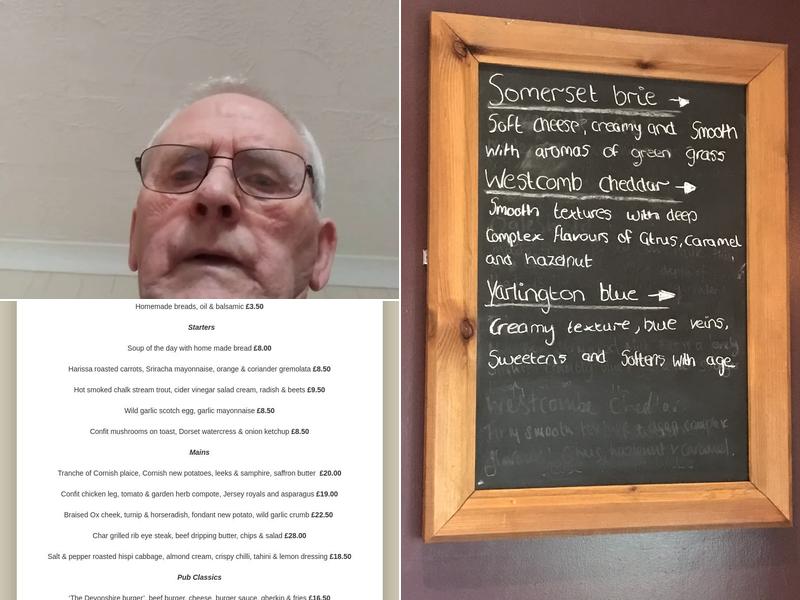 Homemade breads, oil & balsamic £3.50
Starters
Soup of the day with home made bread £8.00
Harissa roasted carrots, Sriracha mayonnaise, orange & coriander gremolata £8.50
Hot smoked chalk stream trout, cider vinegar salad cream, radish & beets £9.50
Wild garlic scotch egg, garlic mayonnaise £8.50
Confit mushrooms on toast, Dorset watercress & onion ketchup £8.50
Mains
Tranche of Cornish plaice, Cornish new potatoes, leeks & samphire, saffron butter £20.00
Confit chicken leg, tomato & garden herb compote, Jersey royals and asparagus £19.00
Braised Ox cheek, turnip & horseradish, fondant new potato, wild garlic crumb £22.50
Char grilled rib eye steak, beef dripping butter, chips & salad £28.00
Salt & pepper roasted hispi cabbage, almond cream, crispy chilli, tahini & lemon dressing £18.50
Pub Classics
'The Devonshire burger', beef burger, cheese, burger sauce, gherkin & fries £16.50
Somerset brie →
Soft cheese, creamy and smooth
with aromas of green grass
Westcomb cheddar →
Smooth textures with deep
complex flavours of Citrus, Caramel
and hazelnut
Yarlington blue →
Creamy texture, blue veins,
Sweetens and Softens with age
Westcombe
smooth